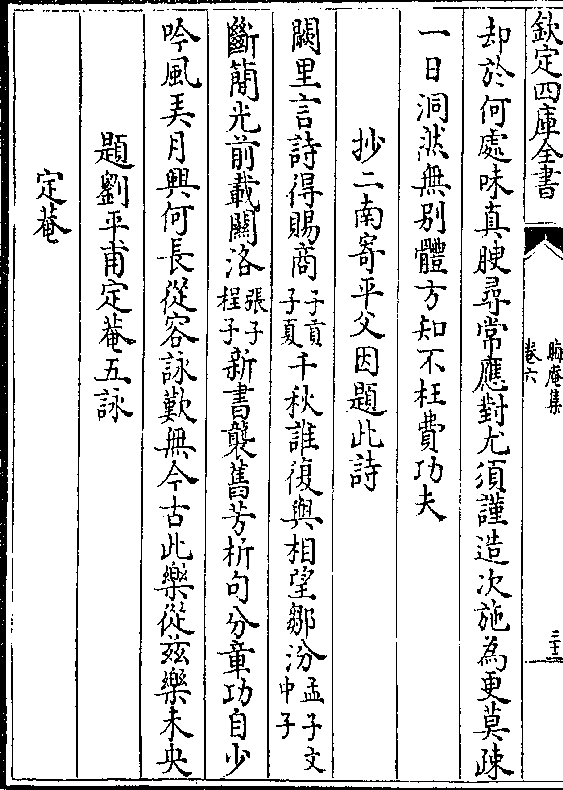 欽定四庫全書
晦庵集
卷六
却於何處味真腴尋常應對尤須謹造次施為更莫疎
一日洞然無别體方知不枉費功夫
抄二南寄平父因題此詩
闕里言詩得賜商子貢子夏千秋誰復與相望鄒汾孟子文中子
斷簡光前載關洛張子程子新書襲舊芳析句分章功自少
吟風弄月興何長從容詠歎無今古此樂從兹樂未央
題劉平甫定菴五詠
定菴